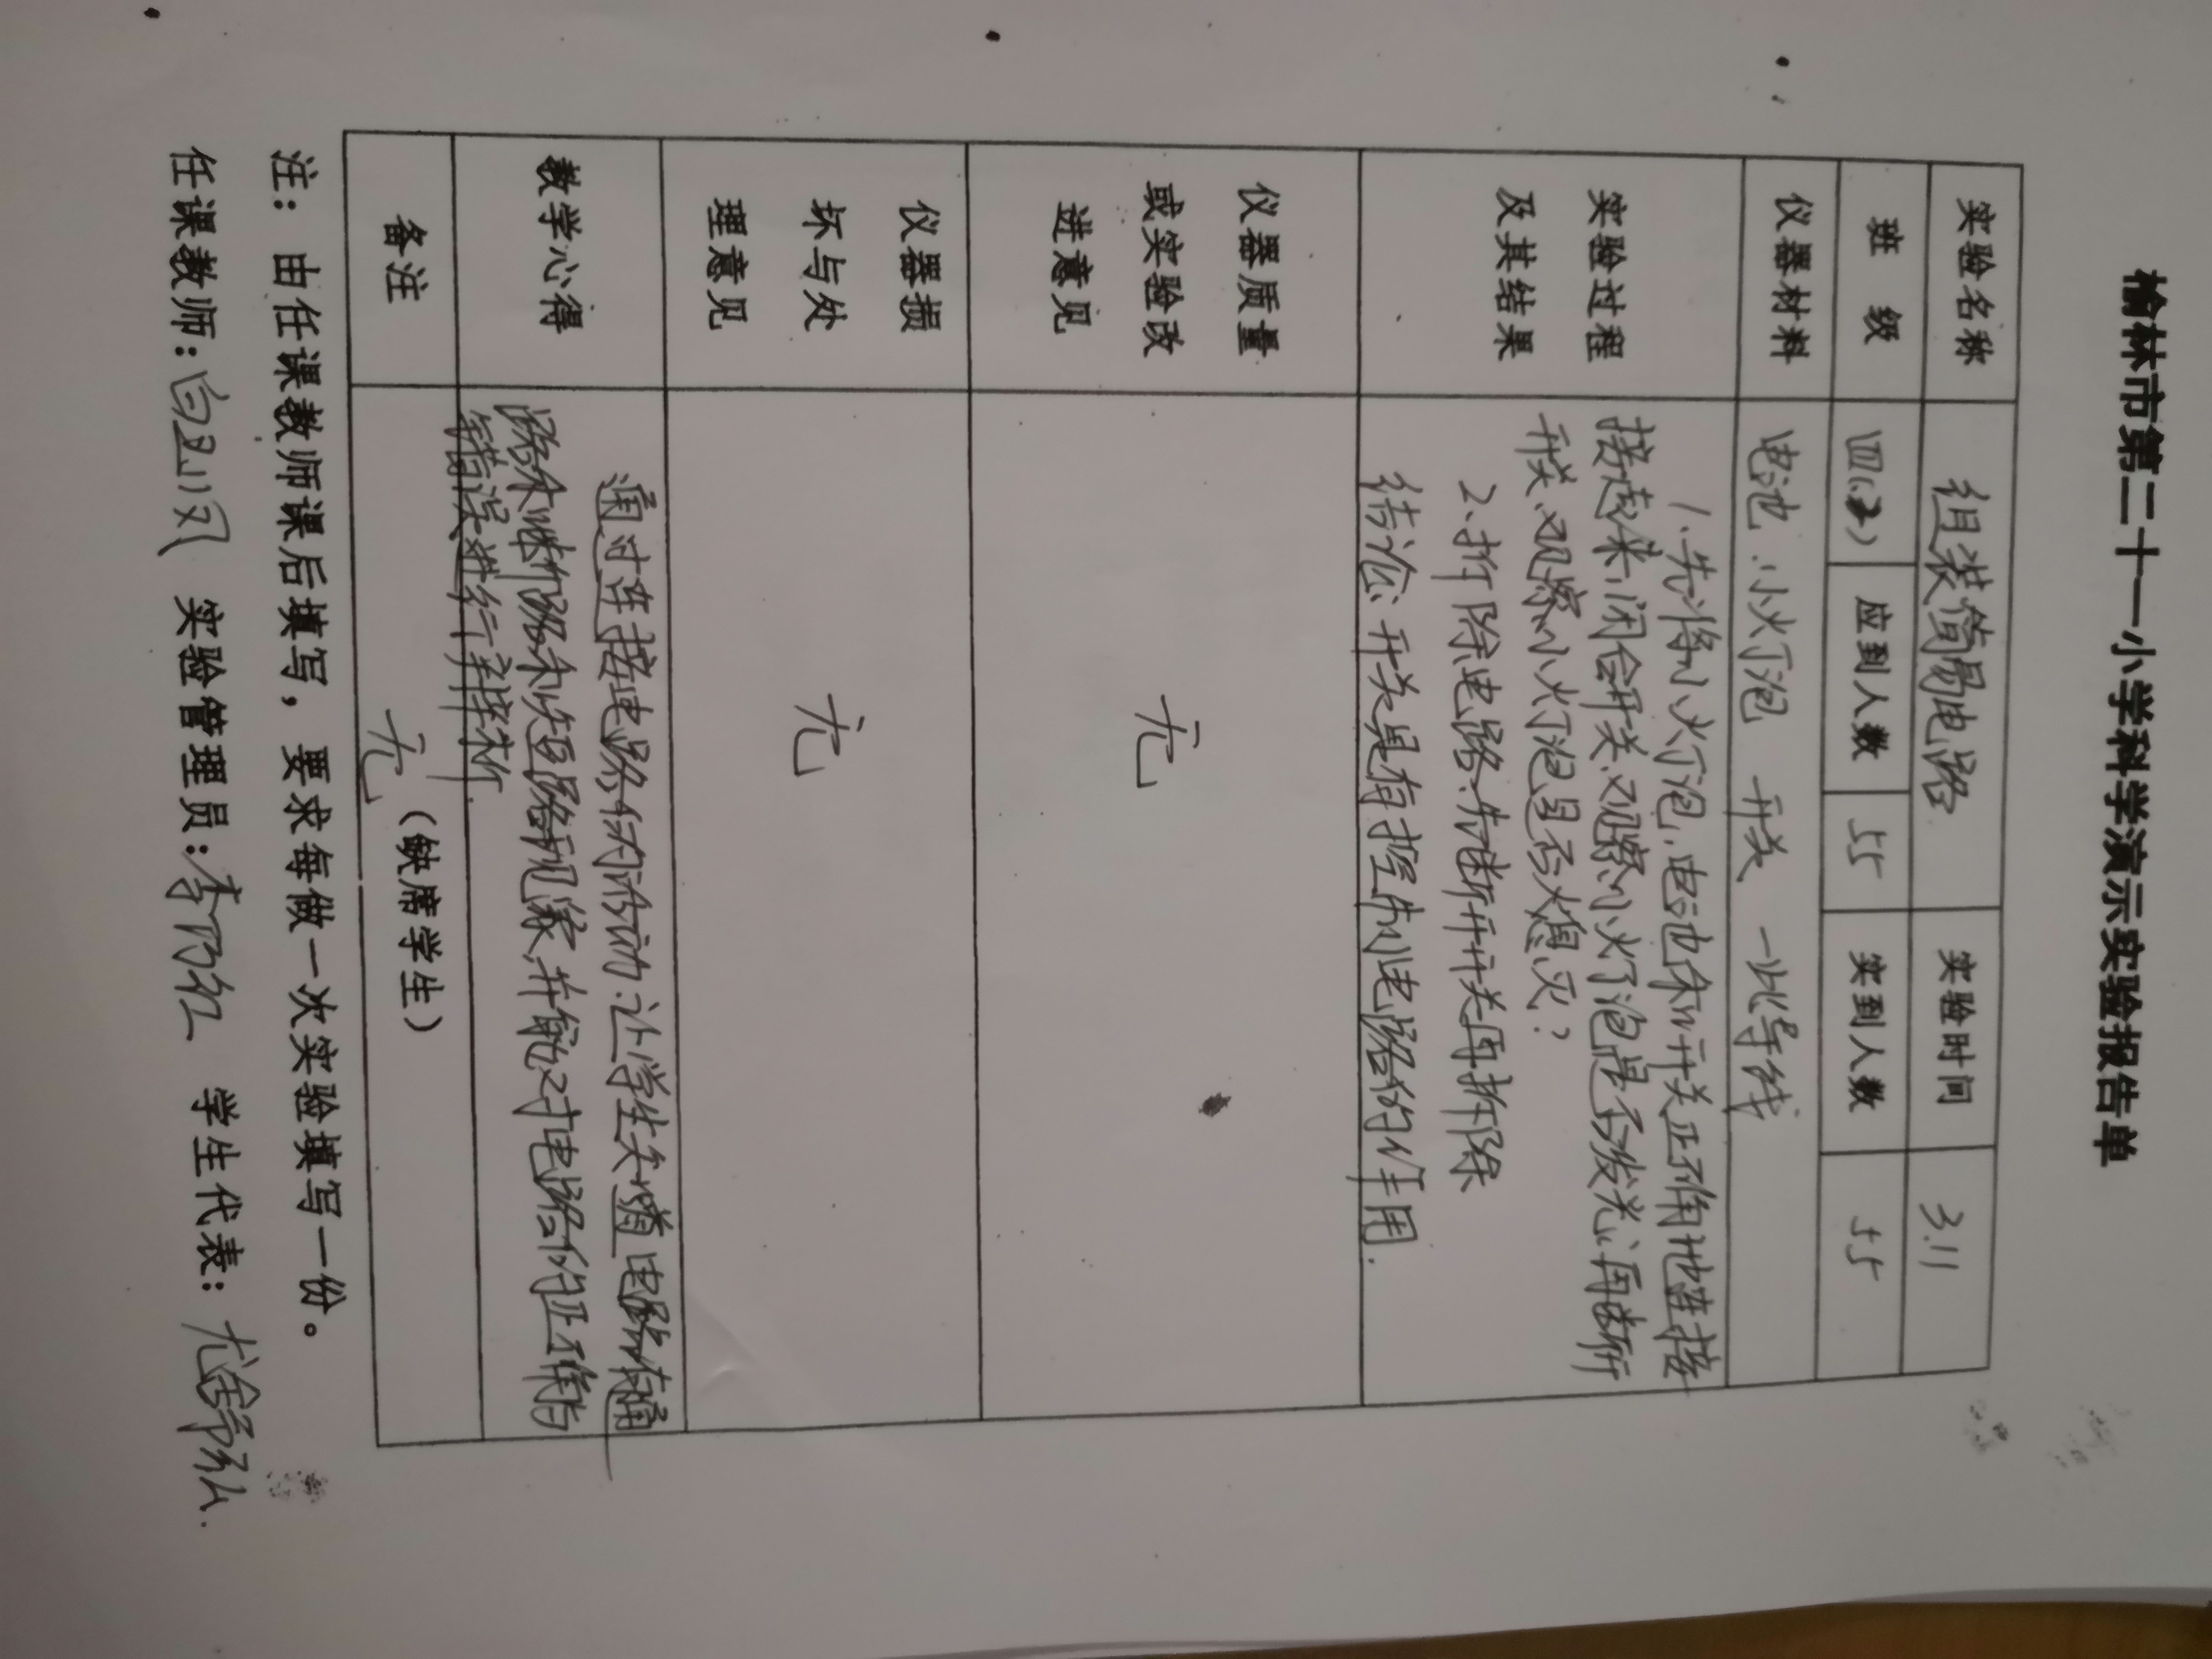 榆林市第二十一小学科学演示实验报告单
实验名称 组装简易电路 实验时间 3.11
班 级 四(2) 应到人数 55 实到人数 55
仪器材料 电池 小灯泡 开关 一些导线
实验过程
及其结果
1.先将小灯泡,电池和开关正确地连接
接起来,闭合开关,观察小灯泡是否发光,再断开
开关,观察小灯泡是否熄灭?
2、拆除电路:先断开开关再拆除
结论:开关具有控制电路的作用.
仪器质量
或实验改
进意见
无
仪器损
坏与处
理意见
无
教学心得
通过连接电路的活动,让学生知道电路有通
路和断路和短路现象,并能对电路的正确与
错误进行辨析.
备注
无(缺席学生)
注:由任课教师课后填写,要求每做一次实验填写一份。
任课教师: 实验管理员: 学生代表: